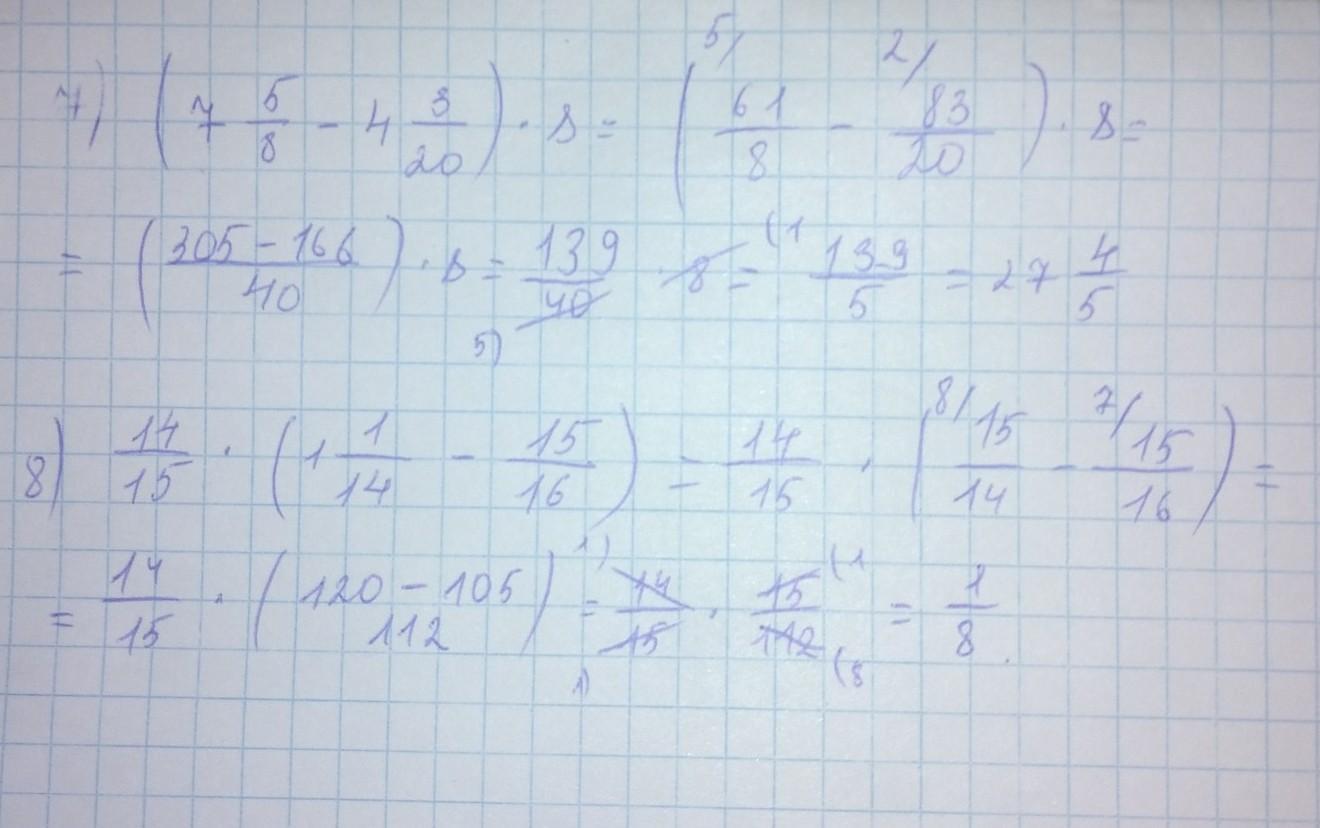 7) (7 5/8 - 4 3/20) · 8 = (5/ 61/8 - 2/ 83/20) · 8 =
= ((305 - 166)/40) · 8 = 139/40 5) · 8 (1 = 139/5 = 27 4/5
8) 14/15 · (1 1/14 - 15/16) = 14/15 · (8/ 15/14 - 7/ 15/16) =
= 14/15 · (120 - 105 112) = 1) 14/15 1) · 15/112 (1 (8 = 1/8.